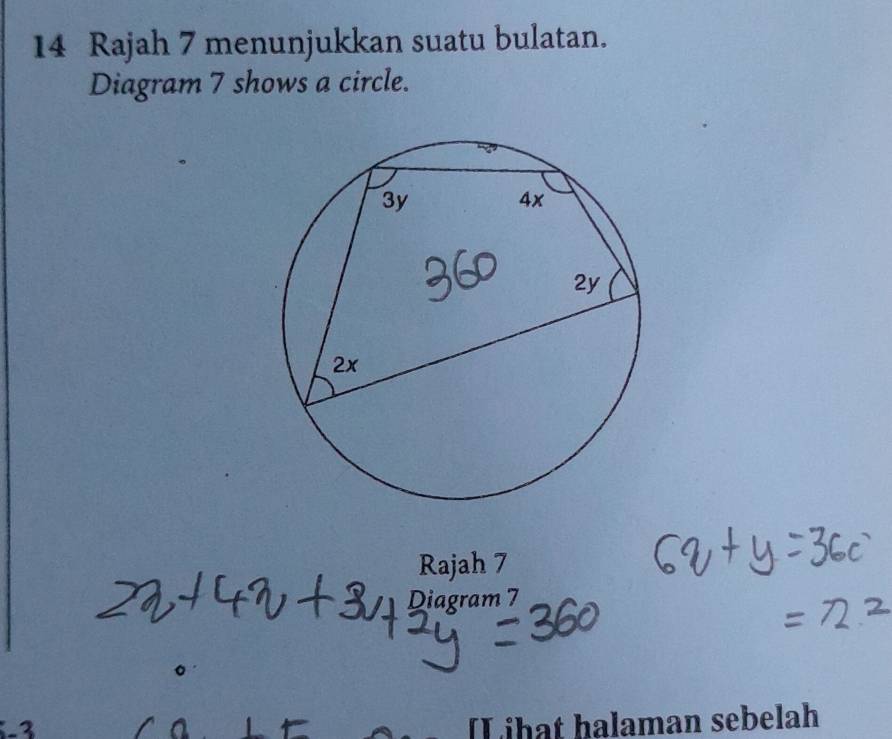 14 Rajah 7 menunjukkan suatu bulatan.
Diagram 7 shows a circle.
3y 4x
360
2y
2x
Rajah 7
Diagram 7
6x + y = 360
2x + 4x + 3y + 2y = 360
= 72.2
[Lihat halaman sebelah